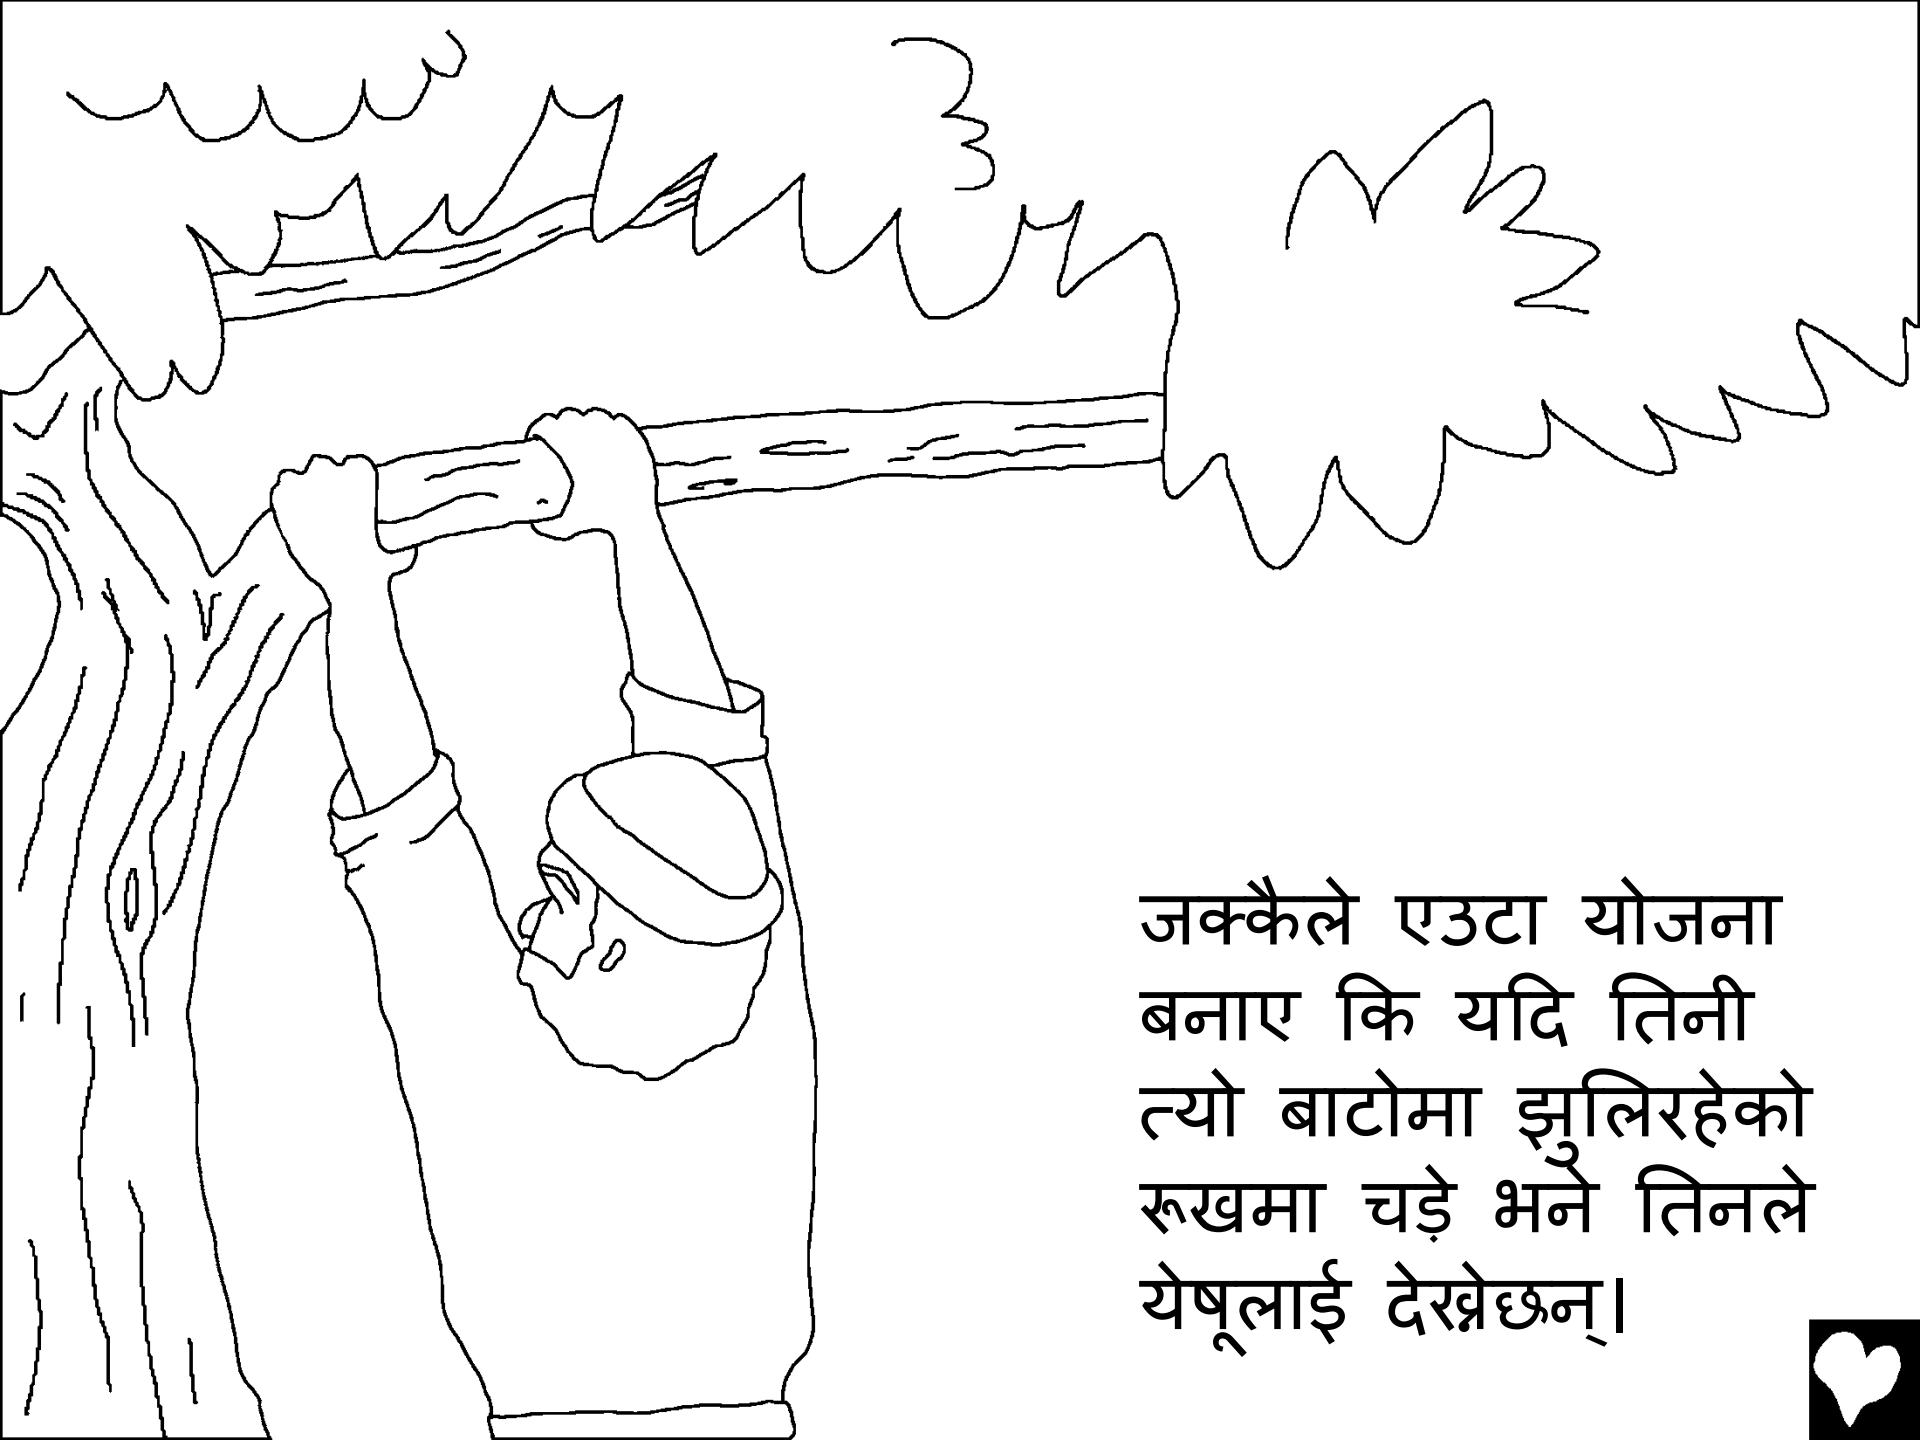 जक्कैले एउटा योजना
बनाए कि यदि तिनी
त्यो बाटोमा झुलिरहेको
रूखमा चड़े भने तिनले
येषूलाई देख्नेछन्।